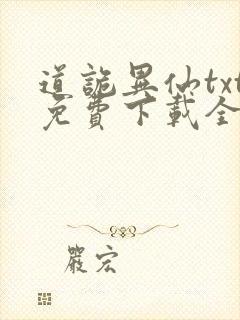 道詭異仙txt
免費下載全
嚴宏